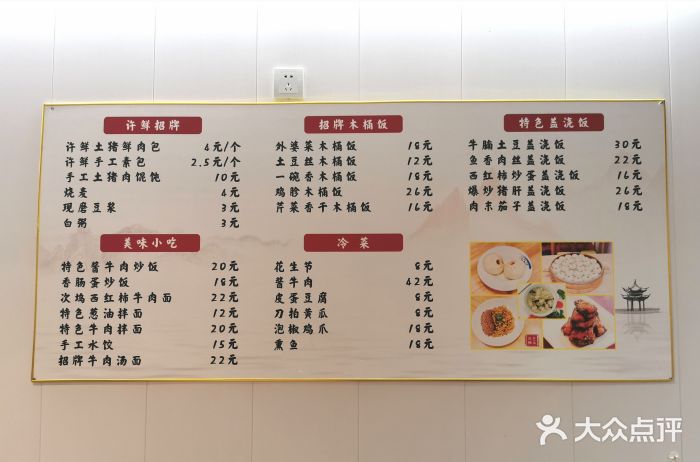 许鲜招牌
许鲜土猪鲜肉包 4元/个
许鲜手工素包 2.5元/个
手工土猪肉馄饨 10元
烧麦 4元
现磨豆浆 3元
白粥 3元
美味小吃
特色酱牛肉炒饭 20元
香肠蛋炒饭 18元
次坞西红柿牛肉面 22元
特色葱油拌面 12元
特色牛肉拌面 20元
手工水饺 15元
招牌牛肉汤面 22元
招牌木桶饭
外婆菜木桶饭 18元
土豆丝木桶饭 12元
一碗香木桶饭 18元
鸡胗木桶饭 26元
芹菜香干木桶饭 16元
冷菜
花生节 8元
酱牛肉 42元
皮蛋豆腐 8元
刀拍黄瓜 8元
泡椒鸡爪 18元
熏鱼 18元
特色盖浇饭
牛腩土豆盖浇饭 30元
鱼香肉丝盖浇饭 22元
西红柿炒蛋盖浇饭 16元
爆炒猪肝盖浇饭 26元
肉末茄子盖浇饭 18元
大众点评